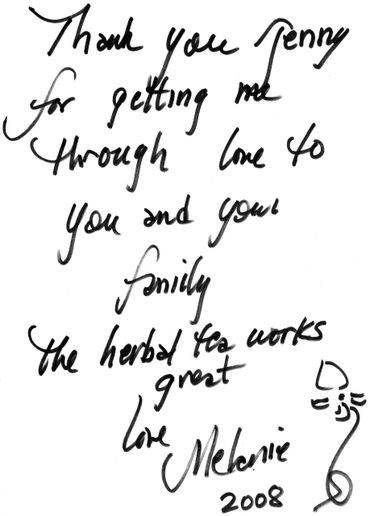 Thank you Jenny
for getting me
through love to
you and your
family
the herbal tea works
great
love
Melanie
2008